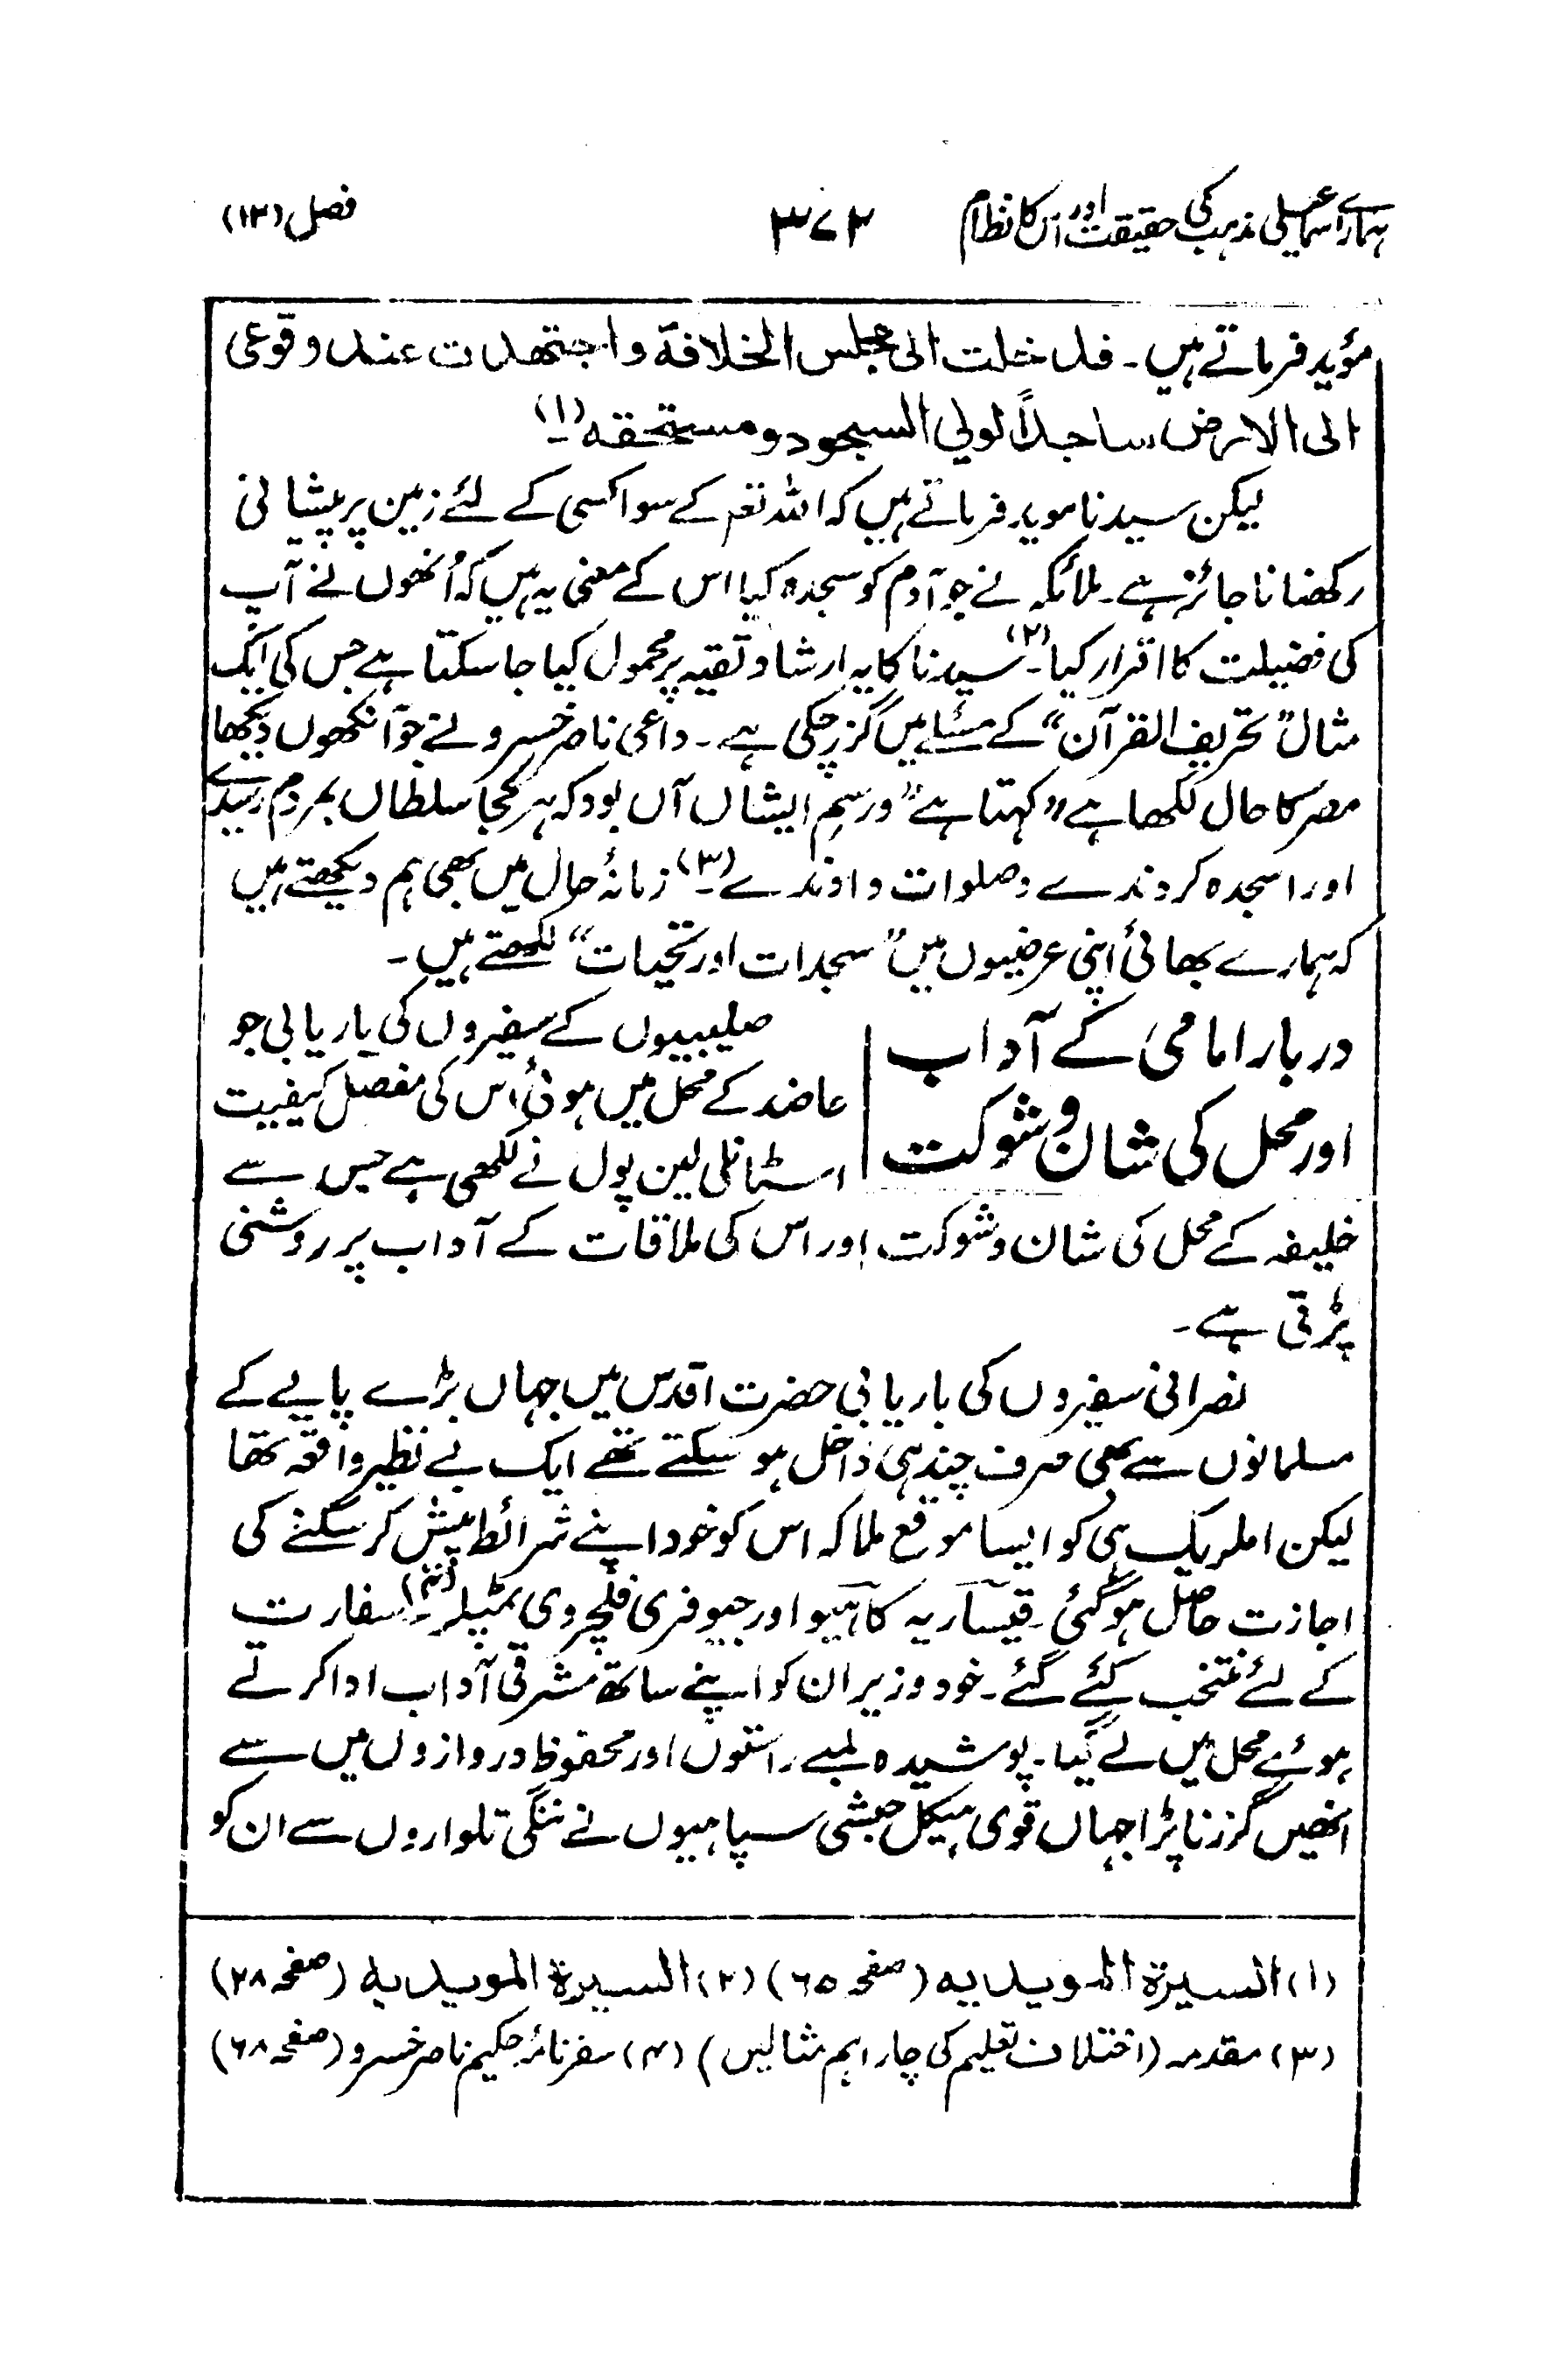 ہمارے اسماعیلی مذہب کی حقیقت اور اس کا نظام ۳۷۲ فصل (۱۳)
مؤید فرماتے ہیں۔ فدخلت الی مجلس الخلافة واجتھدت عند وقوعی
الی الارض ساجداً لولی السجود ومستحقہ (۱)
لیکن سیدنا موید فرماتے ہیں کہ اللہ تعم کے سوا کسی کے لئے زمین پر پیشانی
رکھنا ناجائز ہے۔ ملائکہ نے جو آدم کو سجدہ کیا اس کے معنی یہ ہیں کہ اُنھوں نے آپ
کی فضیلت کا اقرار کیا۔(۲) سیدنا کا یہ ارشاد تقیہ پر محمول کیا جا سکتا ہے جس کی ایک
مثال ”تحریف القرآن“ کے مسئلے میں گزر چکی ہے۔ داعی ناصر خسرو نے جو آنکھوں دیکھا
مصر کا حال لکھا ہے، کہتا ہے ”ورسم ایشاں آں بود کہ ہر کجا سلطاں بمردم رسیدے
اورا سجدہ کردندے وصلوات دادندے۔(۳) زمانۂ حال میں بھی ہم دیکھتے ہیں
کہ ہمارے بھائی اپنی عرضیوں میں ”سجدات اور تحیات“ لکھتے ہیں۔
دربار امامی کے آداب
اور محل کی شان و شوکت
صلیبیوں کے سفیروں کی باریابی جو
عاضد کے محل میں ہوئی، اس کی مفصل کیفیت
اسٹانلی لین پول نے لکھی ہے جس سے
خلیفہ کے محل کی شان و شوکت اور اس کی ملاقات کے آداب پر روشنی
پڑتی ہے۔
نصرانی سفیروں کی باریابی حضرت اقدس میں جہاں بڑے پایے کے
مسلمانوں سے بھی صرف چند ہی داخل ہو سکتے تھے ایک بے نظیر واقعہ تھا
لیکن املریک ہی کو ایسا موقع ملا کہ اس کو خود اپنے شرائط پیش کر سکنے کی
اجازت حاصل ہو گئی۔ قیساریہ کا ہیو اور جیوفری فلچر دی ٹمپلر۔(۴) سفارت
کے لئے منتخب کئے گئے۔ خود وزیر ان کو اپنے ساتھ مشرقی آداب ادا کرتے
ہوئے محل میں لے گیا۔ پوشیدہ لمبے راستوں اور محفوظ دروازوں میں سے
انھیں گزرنا پڑا جہاں قوی ہیکل حبشی سپاہیوں نے ننگی تلواروں سے ان کو
(۱) السیرة المویدیہ (صفحہ ۶۵) (۲) السیرة المویدیہ (صفحہ ۲۸)
(۳) مقدمہ (اختلاف تعلیم کی چار اہم مثالیں) (۴) سفرنامۂ حکیم ناصر خسرو (صفحہ ۶۸)